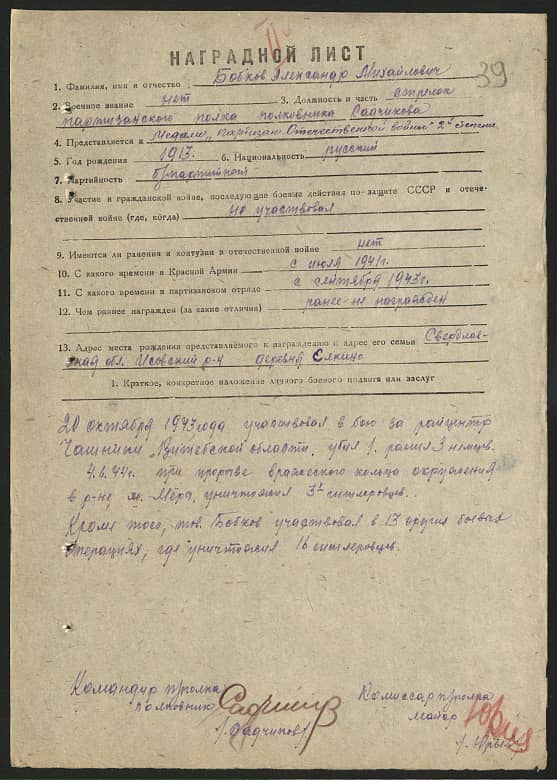 39
НАГРАДНОЙ ЛИСТ
1. Фамилия, имя и отчество Бобков Александр Михайлович
2. Военное звание нет 3. Должность и часть стрелок
партизанского полка полковника Садчикова
4. Представляется к медали "Партизан Отечественной войны" 2й степени
5. Год рождения 1917. 6. Национальность русский
7. Партийность б/партийный
8. Участие в гражданской войне, последующие боевые действия по защите СССР и отече-
ственной войне (где, когда) не участвовал
9. Имеются ли ранения и контузии в отечественной войне нет
10. С какого времени в Красной Армии с июля 1941г.
11. С какого времени в партизанском отряде с сентября 1943г.
12. Чем раннее награжден (за какие отличия) ранее не награжден
13. Адрес места рождения представляемого к награждению и адрес его семьи Свердлов-
ская обл. Исовский р-н деревня Елкино
1. Краткое, конкретное изложение личного боевого подвига или заслуг
20 октября 1943 года участвовал в бою за райцентр
Чашники Витебской области, убил 1, ранил 3 немцев.
4.6.44г. при прорыве вражеского кольца окружения
в р-не м. Мёра, уничтожил 3х гитлеровцев.
Кроме того, тов. Бобков участвовал в 13 других боевых
операциях, где уничтожил 16 гитлеровцев.
Командир п/полка
полковник
/Садчиков/
Комиссар п/полка
майор